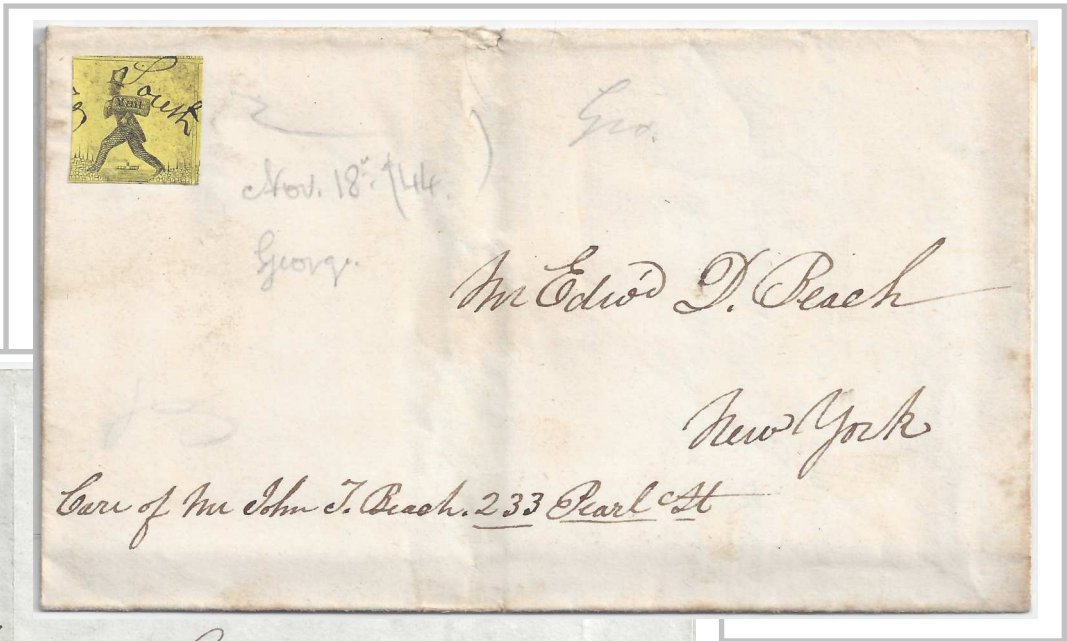 South
Mail
Geo.
Nov. 18. '44.
George.
Mr Edwd D. Beach
New York
Care of Mr John T. Beach. 233 Pearl St